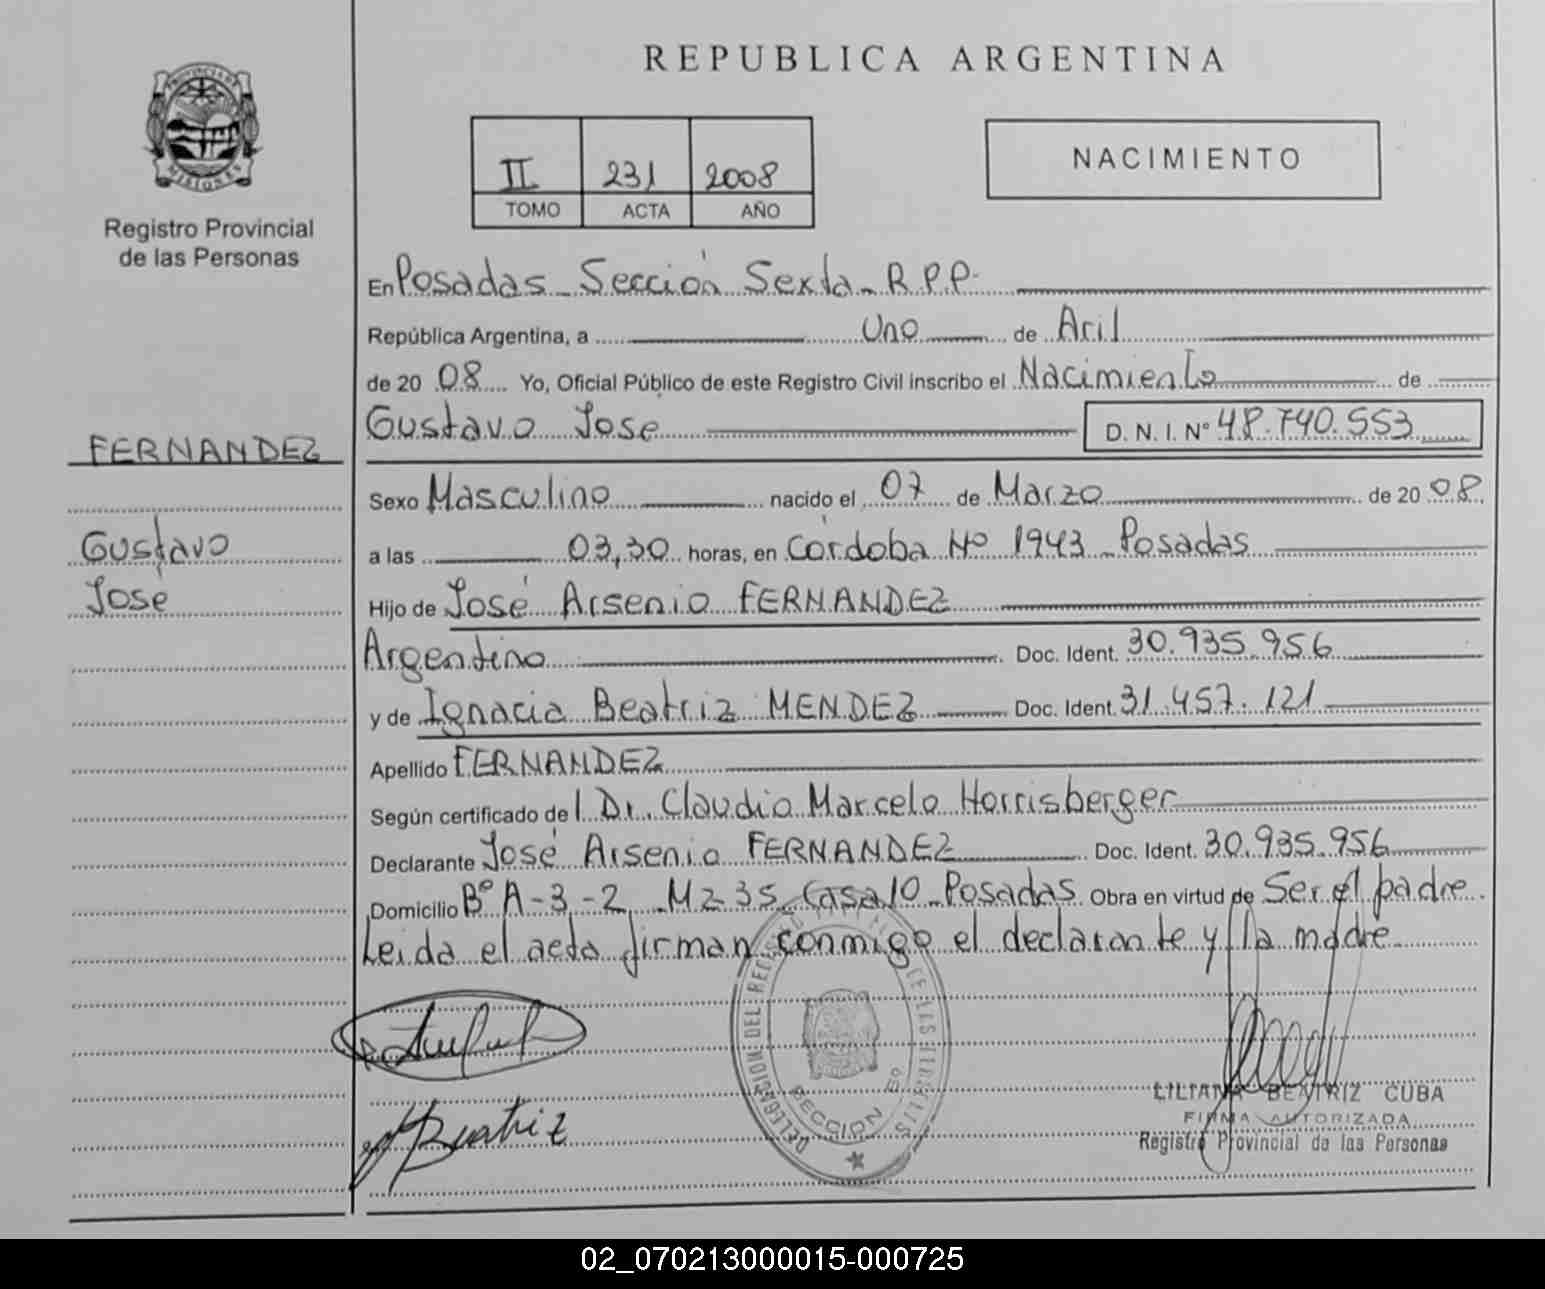 REPUBLICA ARGENTINA
II 231 2008
TOMO ACTA AÑO
NACIMIENTO
PROVINCIA DE MISIONES
Registro Provincial
de las Personas
FERNANDEZ
Gustavo
José
En Posadas - Sección Sexta - R.P.P.
República Argentina, a Uno de Aril
de 20 08 Yo, Oficial Público de este Registro Civil inscribo el Nacimiento de
Gustavo Jose D. N. I. N° 48.740.553
Sexo Masculino nacido el 07 de Marzo de 20 08
a las 03,30 horas, en Córdoba Nº 1943 - Posadas
Hijo de José Arsenio FERNANDEZ
Argentino Doc. Ident. 30.935.956
y de Ignacia Beatriz MENDEZ Doc. Ident. 31.457.121
Apellido FERNANDEZ
Según certificado de l Dr. Claudio Marcelo Horrisberger
Declarante José Arsenio FERNANDEZ Doc. Ident. 30.935.956
Domicilio Bº A-3-2 - Mz 35 Casa 10 - Posadas Obra en virtud de Ser el padre
Leida el acta firman conmigo el declarante y la madre
DELEGACION DEL REGISTRO DE LAS
SECCION 6º
Beatriz
LILIANA BEATRIZ CUBA
FIRMA AUTORIZADA
Registro Provincial de las Personas
02_070213000015-000725